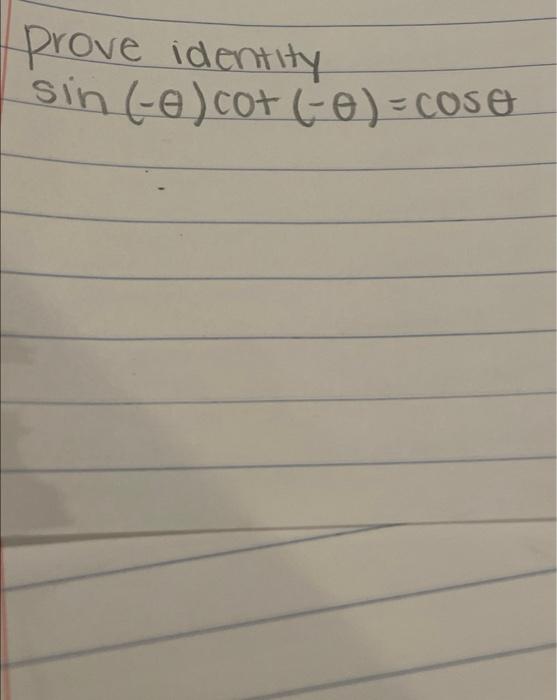 prove identity
sin (-θ) cot (-θ) = cosθ